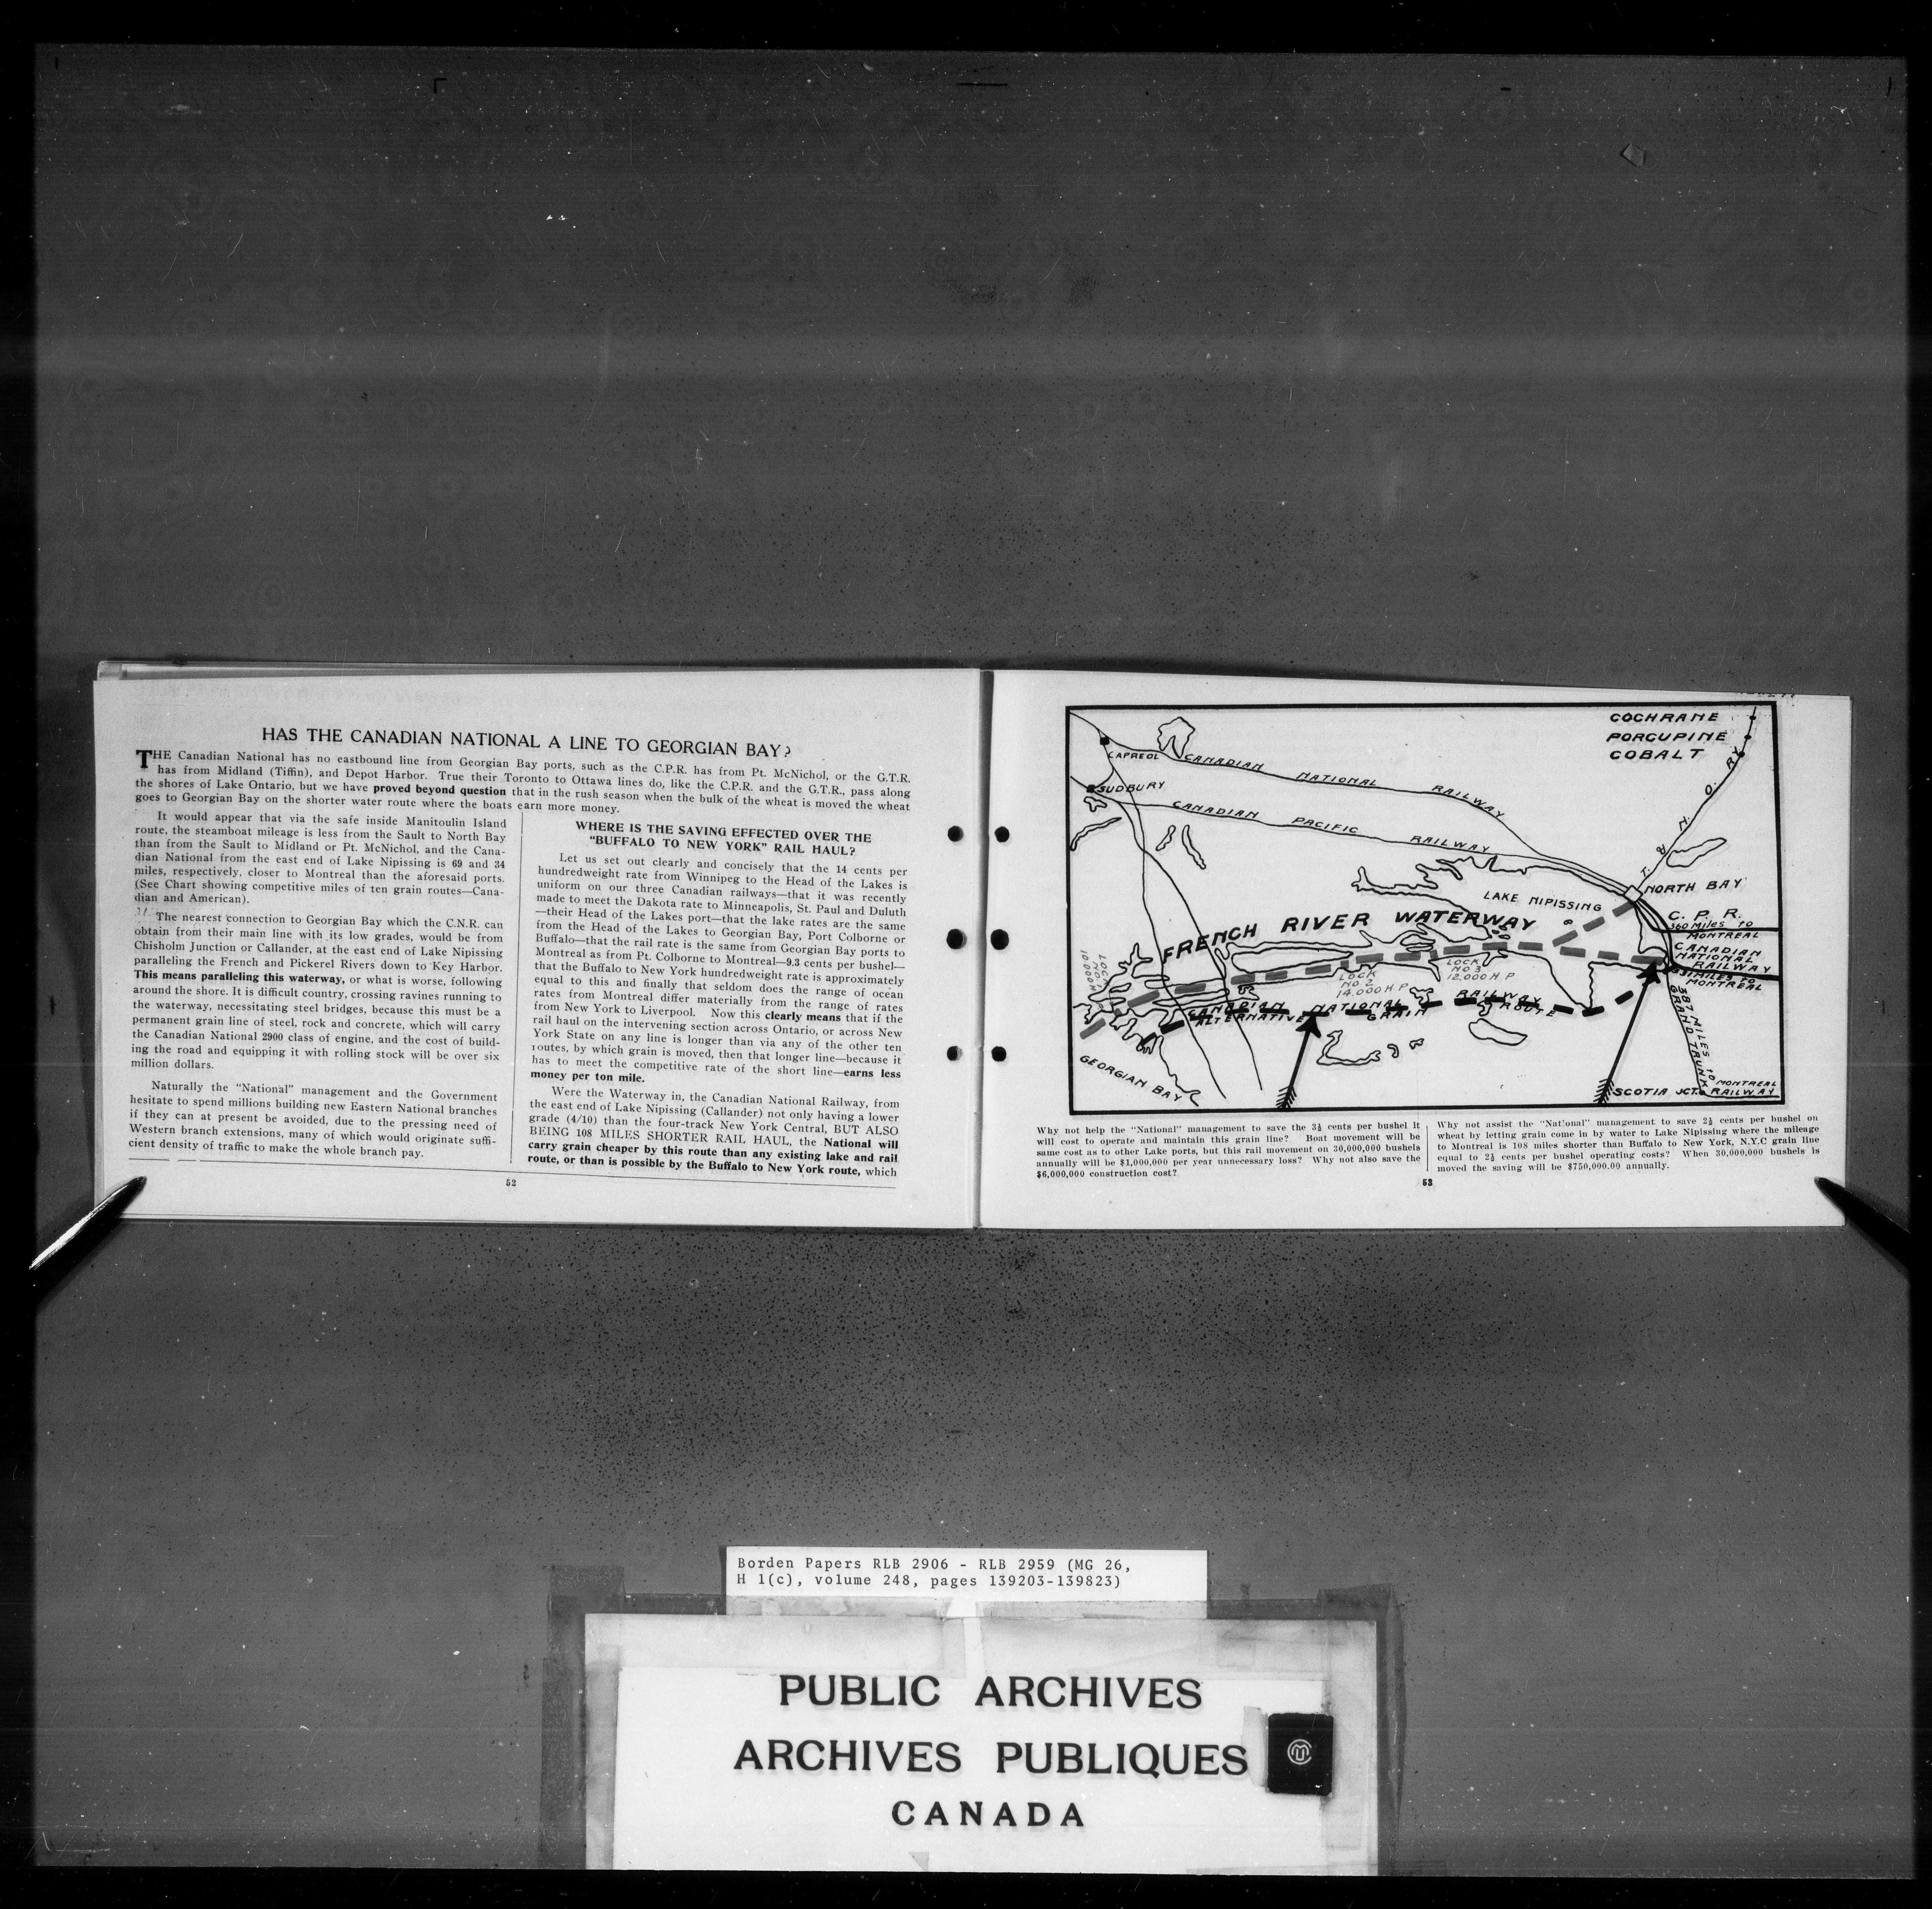 HAS THE CANADIAN NATIONAL A LINE TO GEORGIAN BAY?
THE Canadian National has no eastbound line from Georgian Bay ports, such as the C.P.R. has from Pt. McNichol, or the G.T.R.
has from Midland (Tiffin), and Depot Harbor. True their Toronto to Ottawa lines do, like the C.P.R. and the G.T.R., pass along
the shores of Lake Ontario, but we have proved beyond question that in the rush season when the bulk of the wheat is moved the wheat
goes to Georgian Bay on the shorter water route where the boats earn more money.
It would appear that via the safe inside Manitoulin Island
route, the steamboat mileage is less from the Sault to North Bay
than from the Sault to Midland or Pt. McNichol, and the Cana-
dian National from the east end of Lake Nipissing is 69 and 34
miles, respectively, closer to Montreal than the aforesaid ports.
(See Chart showing competitive miles of ten grain routes—Cana-
dian and American).
The nearest connection to Georgian Bay which the C.N.R. can
obtain from their main line with its low grades, would be from
Chisholm Junction or Callander, at the east end of Lake Nipissing
paralleling the French and Pickerel Rivers down to Key Harbor.
This means paralleling this waterway, or what is worse, following
around the shore. It is difficult country, crossing ravines running to
the waterway, necessitating steel bridges, because this must be a
permanent grain line of steel, rock and concrete, which will carry
the Canadian National 2900 class of engine, and the cost of build-
ing the road and equipping it with rolling stock will be over six
million dollars.
Naturally the "National" management and the Government
hesitate to spend millions building new Eastern National branches
if they can at present be avoided, due to the pressing need of
Western branch extensions, many of which would originate suffi-
cient density of traffic to make the whole branch pay.
WHERE IS THE SAVING EFFECTED OVER THE
"BUFFALO TO NEW YORK" RAIL HAUL?
Let us set out clearly and concisely that the 14 cents per
hundredweight rate from Winnipeg to the Head of the Lakes is
uniform on our three Canadian railways—that it was recently
made to meet the Dakota rate to Minneapolis, St. Paul and Duluth
—their Head of the Lakes port—that the lake rates are the same
from the Head of the Lakes to Georgian Bay, Port Colborne or
Buffalo—that the rail rate is the same from Georgian Bay ports to
Montreal as from Pt. Colborne to Montreal—9.3 cents per bushel—
that the Buffalo to New York hundredweight rate is approximately
equal to this and finally that seldom does the range of ocean
rates from Montreal differ materially from the range of rates
from New York to Liverpool. Now this clearly means that if the
rail haul on the intervening section across Ontario, or across New
York State on any line is longer than via any of the other ten
routes, by which grain is moved, then that longer line—because it
has to meet the competitive rate of the short line—earns less
money per ton mile.
Were the Waterway in, the Canadian National Railway, from
the east end of Lake Nipissing (Callander) not only having a lower
grade (4/10) than the four-track New York Central, BUT ALSO
BEING 108 MILES SHORTER RAIL HAUL, the National will
carry grain cheaper by this route than any existing lake and rail
route, or than is possible by the Buffalo to New York route, which
52
COCHRANE
PORCUPINE
COBALT
CAPREOL
CANADIAN NATIONAL RAILWAY
SUDBURY
CANADIAN PACIFIC RAILWAY
T. & N. O. RY
LAKE NIPISSING
NORTH BAY
C. P. R.
360 MILES TO
MONTREAL
FRENCH RIVER WATERWAY
CANADIAN
NATIONAL
RAILWAY
MILES TO
MONTREAL
LOCK
NO 3
12,000 H.P
LOCK
NO 2
14,000 H.P
CANADIAN NATIONAL RAILWAY
ALTERNATIVE GRAIN ROUTE
GEORGIAN BAY
387 MILES TO MONTREAL
GRAND TRUNK RAILWAY
SCOTIA JCT.
Why not help the "National" management to save the 3½ cents per bushel it
will cost to operate and maintain this grain line? Boat movement will be
same cost as to other Lake ports, but this rail movement on 30,000,000 bushels
annually will be $1,000,000 per year unnecessary loss? Why not also save the
$6,000,000 construction cost?
Why not assist the "National" management to save 2½ cents per bushel on
wheat by letting grain come in by water to Lake Nipissing where the mileage
to Montreal is 108 miles shorter than Buffalo to New York, N.Y.C grain line
equal to 2½ cents per bushel operating costs? When 30,000,000 bushels is
moved the saving will be $750,000.00 annually.
53
Borden Papers RLB 2906 - RLB 2959 (MG 26,
H 1(c), volume 248, pages 139203-139823)
PUBLIC ARCHIVES
ARCHIVES PUBLIQUES
CANADA